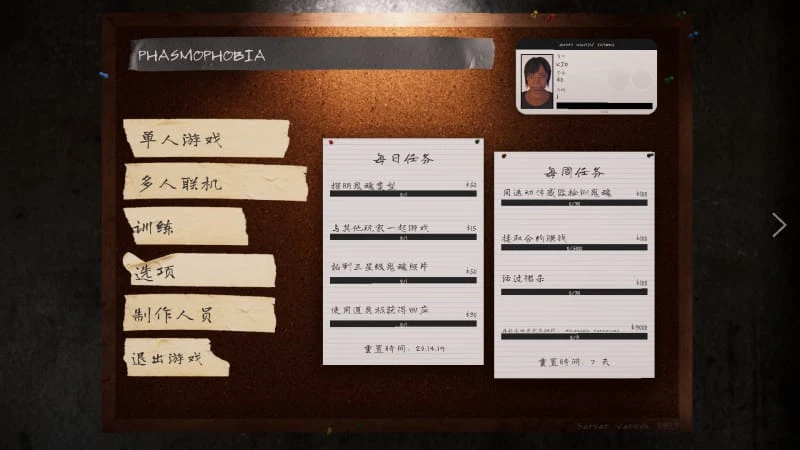 PHASMOPHOBIA
单人游戏
多人联机
训练
选项
制作人员
退出游戏
每日任务
探明鬼魂类型 $50
0/1
与其他玩家一起游戏 $15
0/1
拍到三星级鬼魂照片 $50
0/1
使用道具板获得回应 $30
0/1
重置时间: 20:14:19
每周任务
用运动传感器检测鬼魂
接取合约赚钱
活过猎杀
$3000
重置时间: 7 天
Server Version